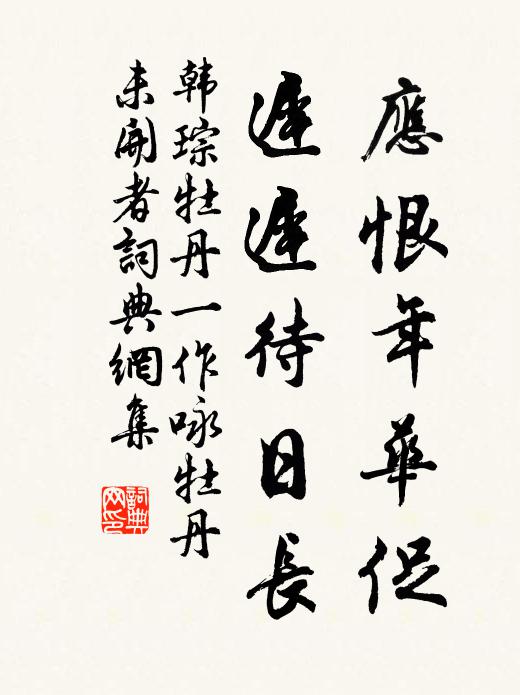 應恨年華促
遲遲待日長
韩琮牡丹一作咏牡丹
未開者詞典網集
詞典
网印